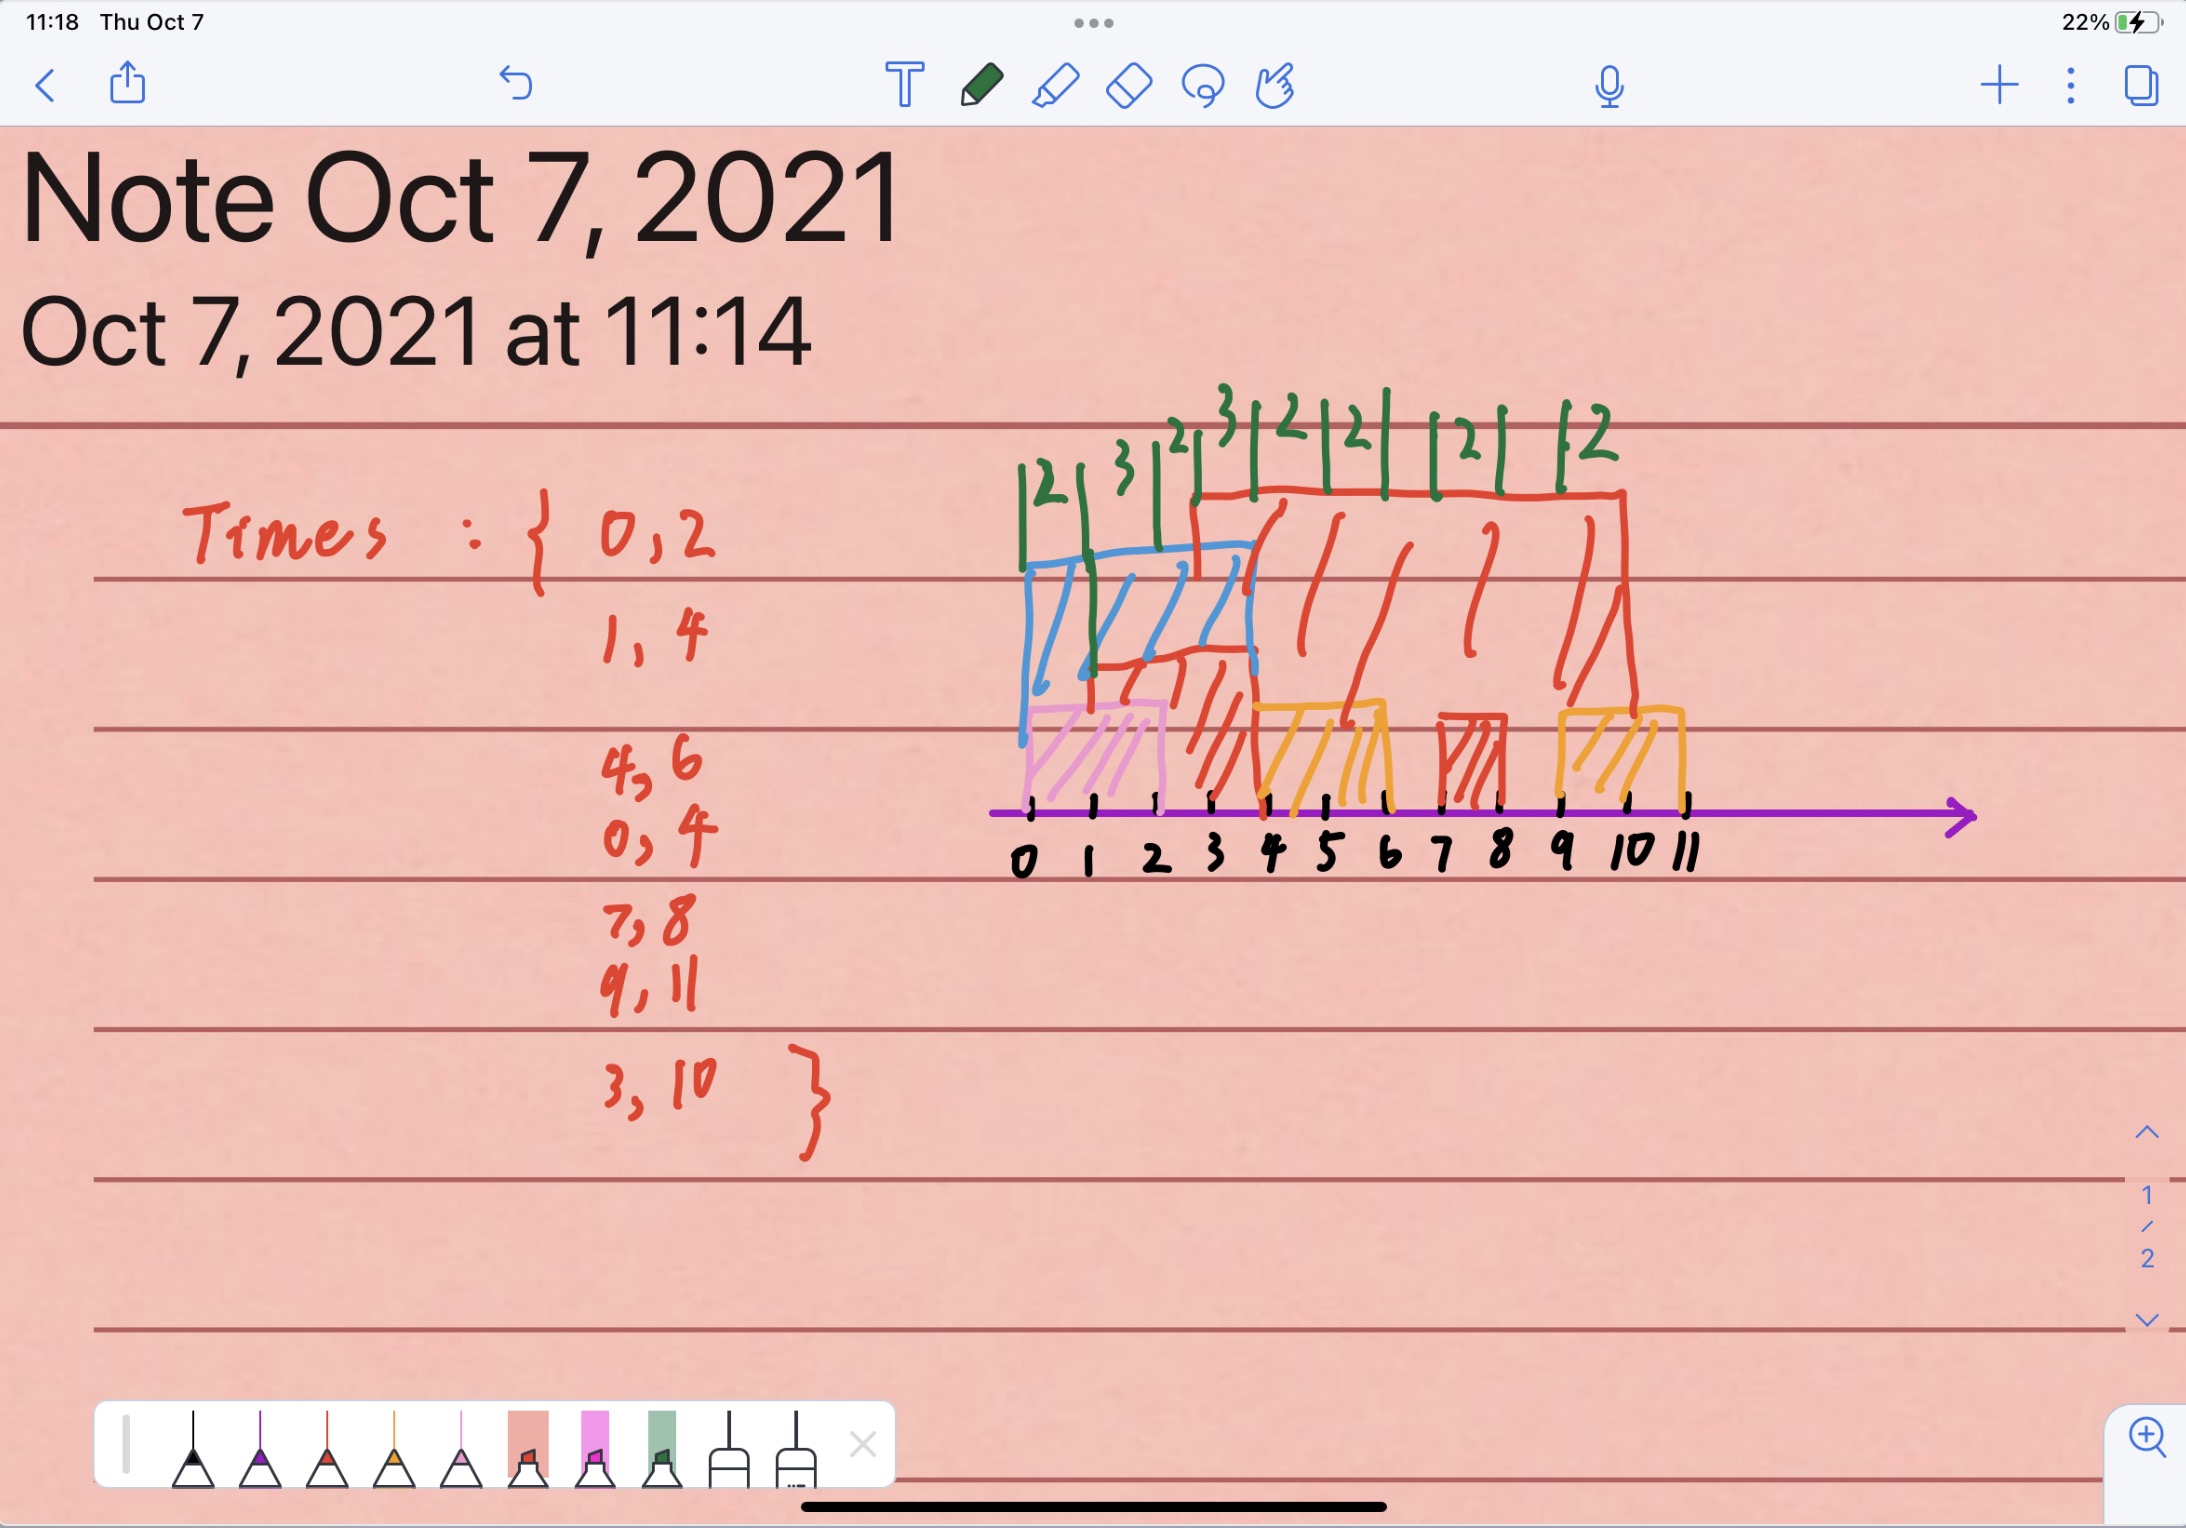 11:18 Thu Oct 7
22%
T
Note Oct 7, 2021
Oct 7, 2021 at 11:14
2 3 2 3 2 2 2 2
Times : { 0, 2
1, 4
4, 6
0, 4
7, 8
9, 11
3, 10 }
0 1 2 3 4 5 6 7 8 9 10 11
1
/
2